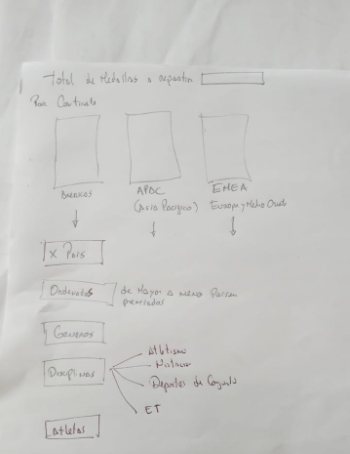 Total de Medallas a repartir
Por Continente
Americas APAC EMEA
(Asia Pacifico) Europa y Medio Oriente
x Pais
Ordenados de Mayor a menor
premiados
Generos
Disciplinas
Atletismo
Natacion
Deportes de Conjunto
ET
Atletas